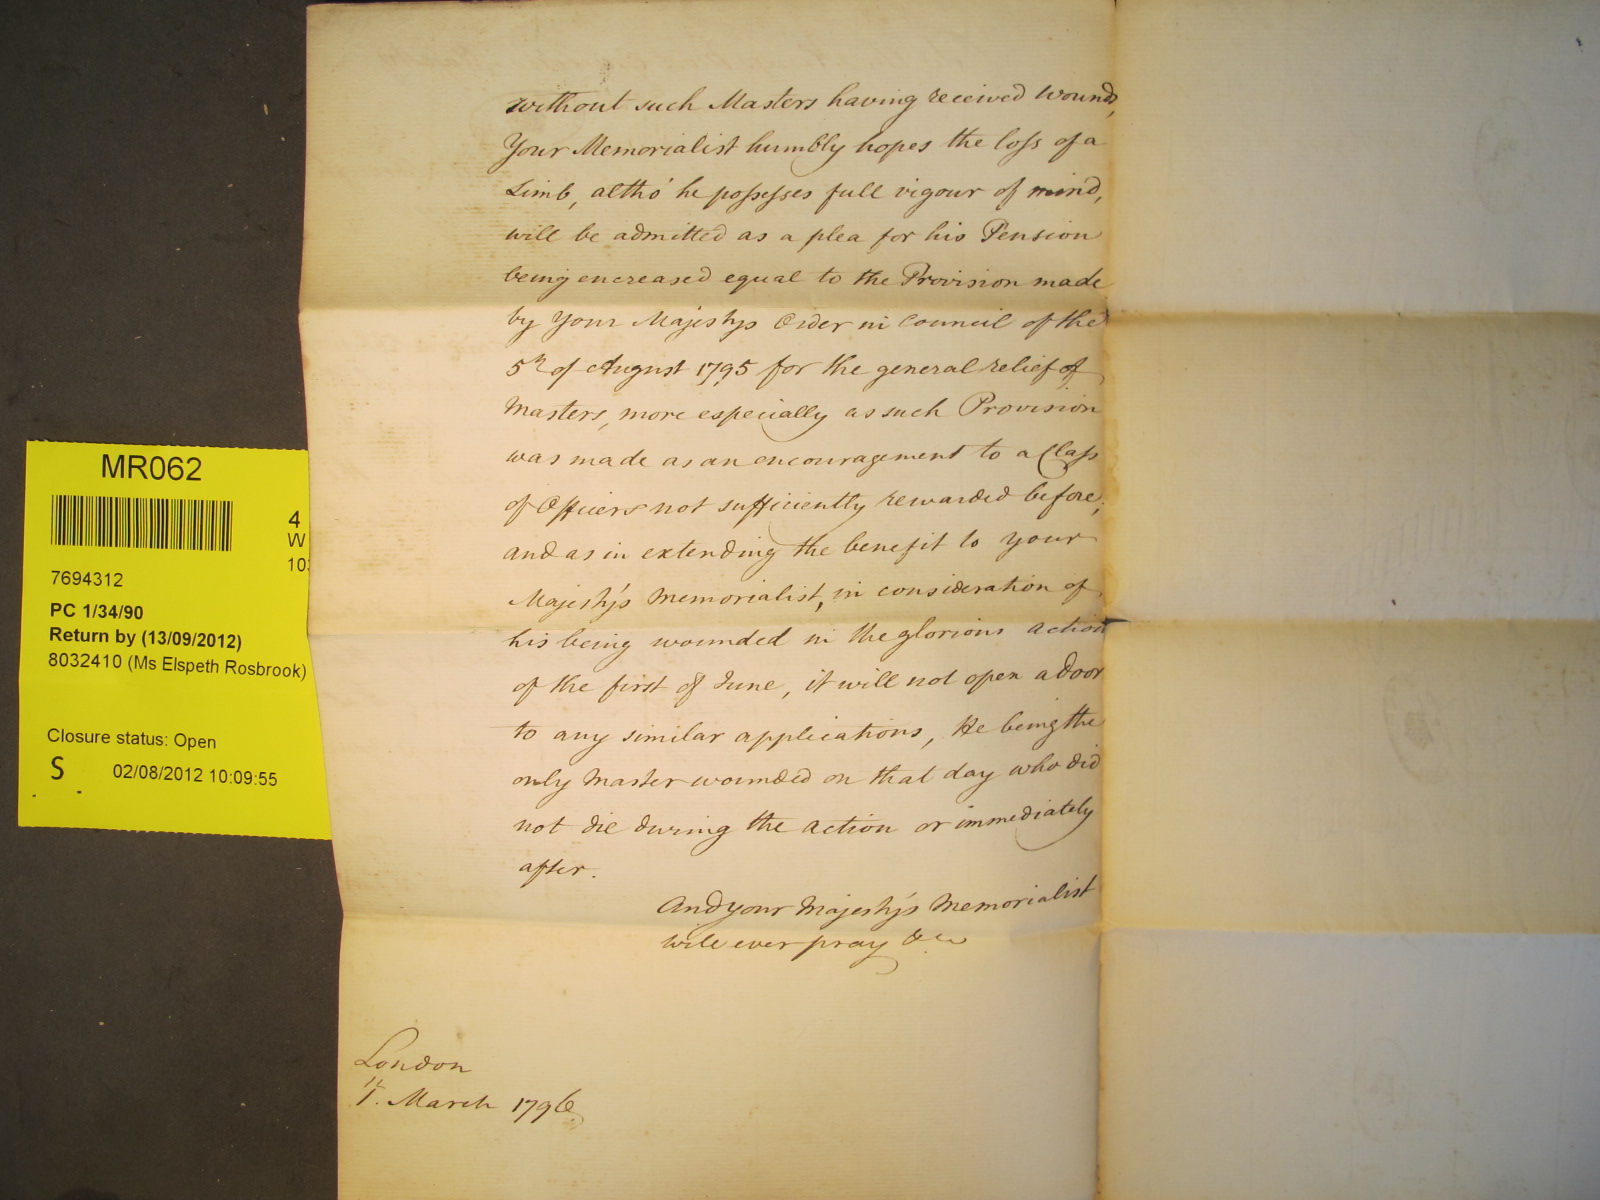 without such Masters having received wounds,
Your Memorialist humbly hopes the loss of a
Limb, altho' he possesses full vigour of mind,
will be admitted as a plea for his Pension
being encreased equal to the Provision made
by Your Majestys Order in Council of the
5th of August 1795 for the general relief of
Masters, more especially as such Provision
was made as an encouragement to a Class
of Officers not sufficiently rewarded before;
and as in extending the benefit to your
Majesty's Memorialist, in consideration of
his being wounded in the glorious action
of the first of June, it will not open a Door
to any similar applications, He being the
only Master wounded on that day who did
not die during the action or immediately
after.
And your Majesty's Memorialist
will ever pray &c
London
March 1796.
MR062
4
W
10
7694312
PC 1/34/90
Return by (13/09/2012)
8032410 (Ms Elspeth Rosbrook)
Closure status: Open
S 02/08/2012 10:09:55